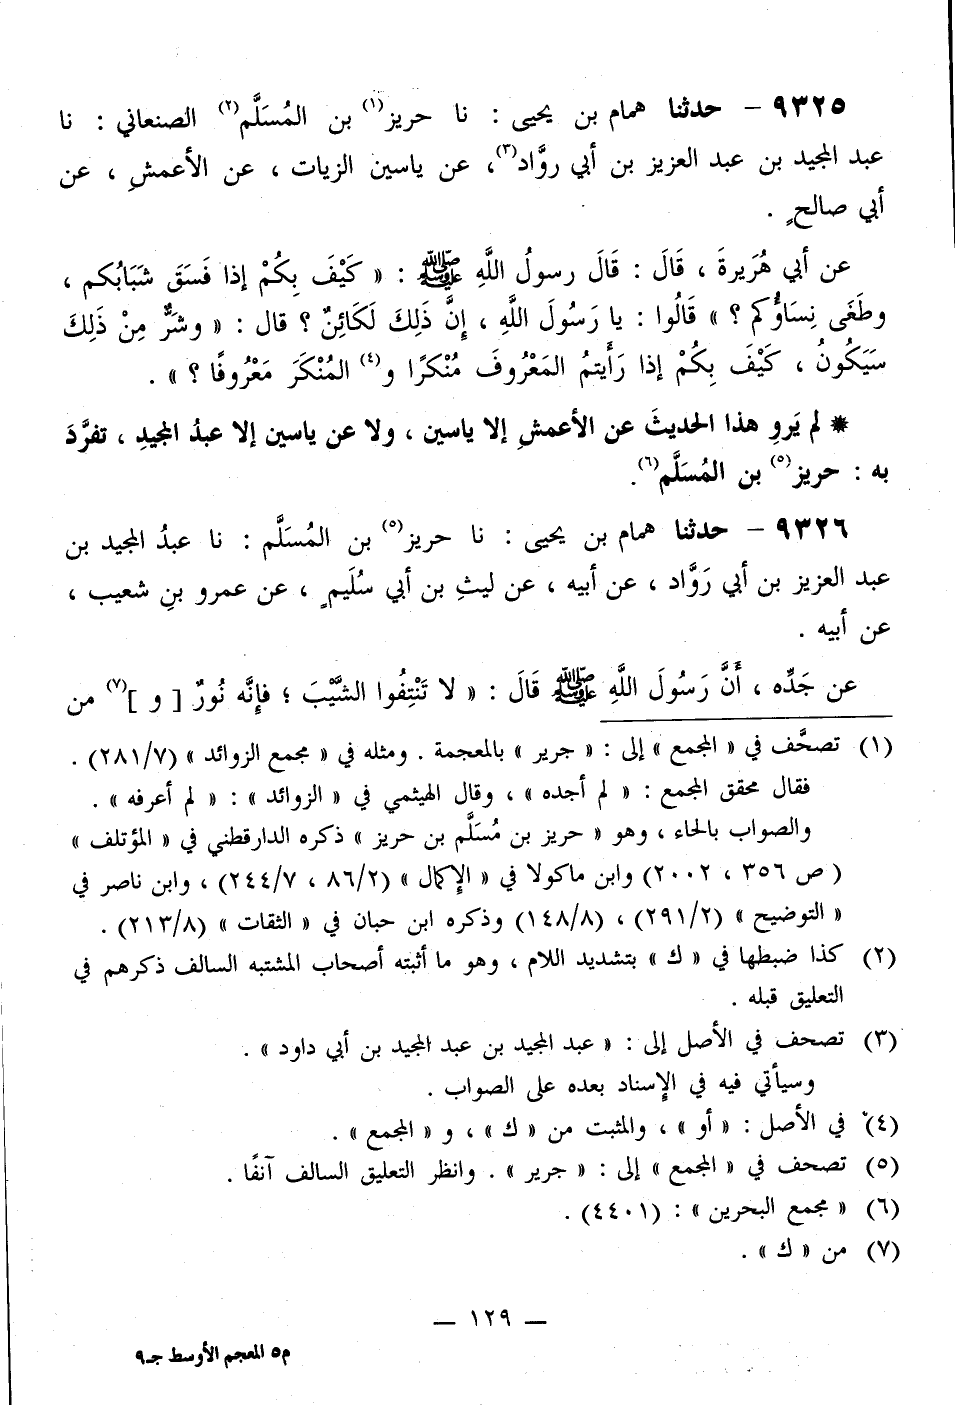 ٩٣٢٥ – حدثنا همام بن يحيى : نا حريز(١) بن المُسَلَّم(٢) الصنعاني : نا
عبد المجيد بن عبد العزيز بن أبي روَّاد(٣)، عن ياسين الزيات ، عن الأعمشِ ، عن
أبي صالحٍ .
عن أبي هُرَيرةَ ، قَالَ : قَالَ رسولُ اللَّهِ ﷺ : « كَيْفَ بِكُمْ إذا فَسَقَ شَبَابُكم ،
وطَغَى نِسَاؤُكم ؟ » قَالُوا : يا رَسُولَ اللَّهِ ، إِنَّ ذَلِكَ لَكَائِنٌ ؟ قال : « وشَرٌّ مِنْ ذَلِكَ
سَيَكُونُ ، كَيْفَ بِكُمْ إذا رَأَيتمُ المَعْرُوفَ مُنْكرًا و(٤) المُنْكَرَ مَعْرُوفًا ؟ » .
* لم يَروِ هذا الحديثَ عن الأعمشِ إلا ياسين ، ولا عن ياسين إلا عبدُ المجيدِ ، تفرَّدَ
به : حريز(٥) بن المُسَلَّم(٦).
٩٣٢٦ – حدثنا همام بن يحيى : نا حريز(٥) بن المُسَلَّم : نا عبدُ المجيد بن
عبد العزيز بن أبي رَوَّاد ، عن أبيه ، عن ليثِ بن أبي سُلَيمٍ ، عن عمرو بنِ شعيب ،
عن أبيه .
عن جَدِّه ، أَنَّ رَسُولَ اللَّهِ ﷺ قَالَ : « لا تَنْتِفُوا الشَّيْبَ ؛ فإنَّه نُورٌ [ و ](٧) من
(١) تصحَّف في « المجمع » إلى : « جرير » بالمعجمة . ومثله في « مجمع الزوائد » (٢٨١/٧) .
فقال محقق المجمع : « لم أجده » ، وقال الهيثمي في « الزوائد » : « لم أعرفه » .
والصواب بالحاء ، وهو « حريز بن مُسَلَّم بن حريز » ذكره الدارقطني في « المؤتلف »
( ص ٣٥٦ ، ٢٠٠٢) وابن ماكولا في « الإكمال » (٨٦/٢ ، ٢٤٤/٧) ، وابن ناصر في
« التوضيح » (٢٩١/٢) ، (١٤٨/٨) وذكره ابن حبان في « الثقات » (٢١٣/٨) .
(٢) كذا ضبطها في « ك » بتشديد اللام ، وهو ما أثبته أصحاب المشتبه السالف ذكرهم في
التعليق قبله .
(٣) تصحف في الأصل إلى : « عبد المجيد بن عبد المجيد بن أبي داود » .
وسيأتي فيه في الإسناد بعده على الصواب .
(٤) في الأصل : « أو » ، والمثبت من « ك » ، و « المجمع » .
(٥) تصحف في « المجمع » إلى : « جرير » . وانظر التعليق السالف آنفًا .
(٦) « مجمع البحرين » : (٤٤٠١) .
(٧) من « ك » .
— ١٢٩ —
م٥ المعجم الأوسط جـ٩